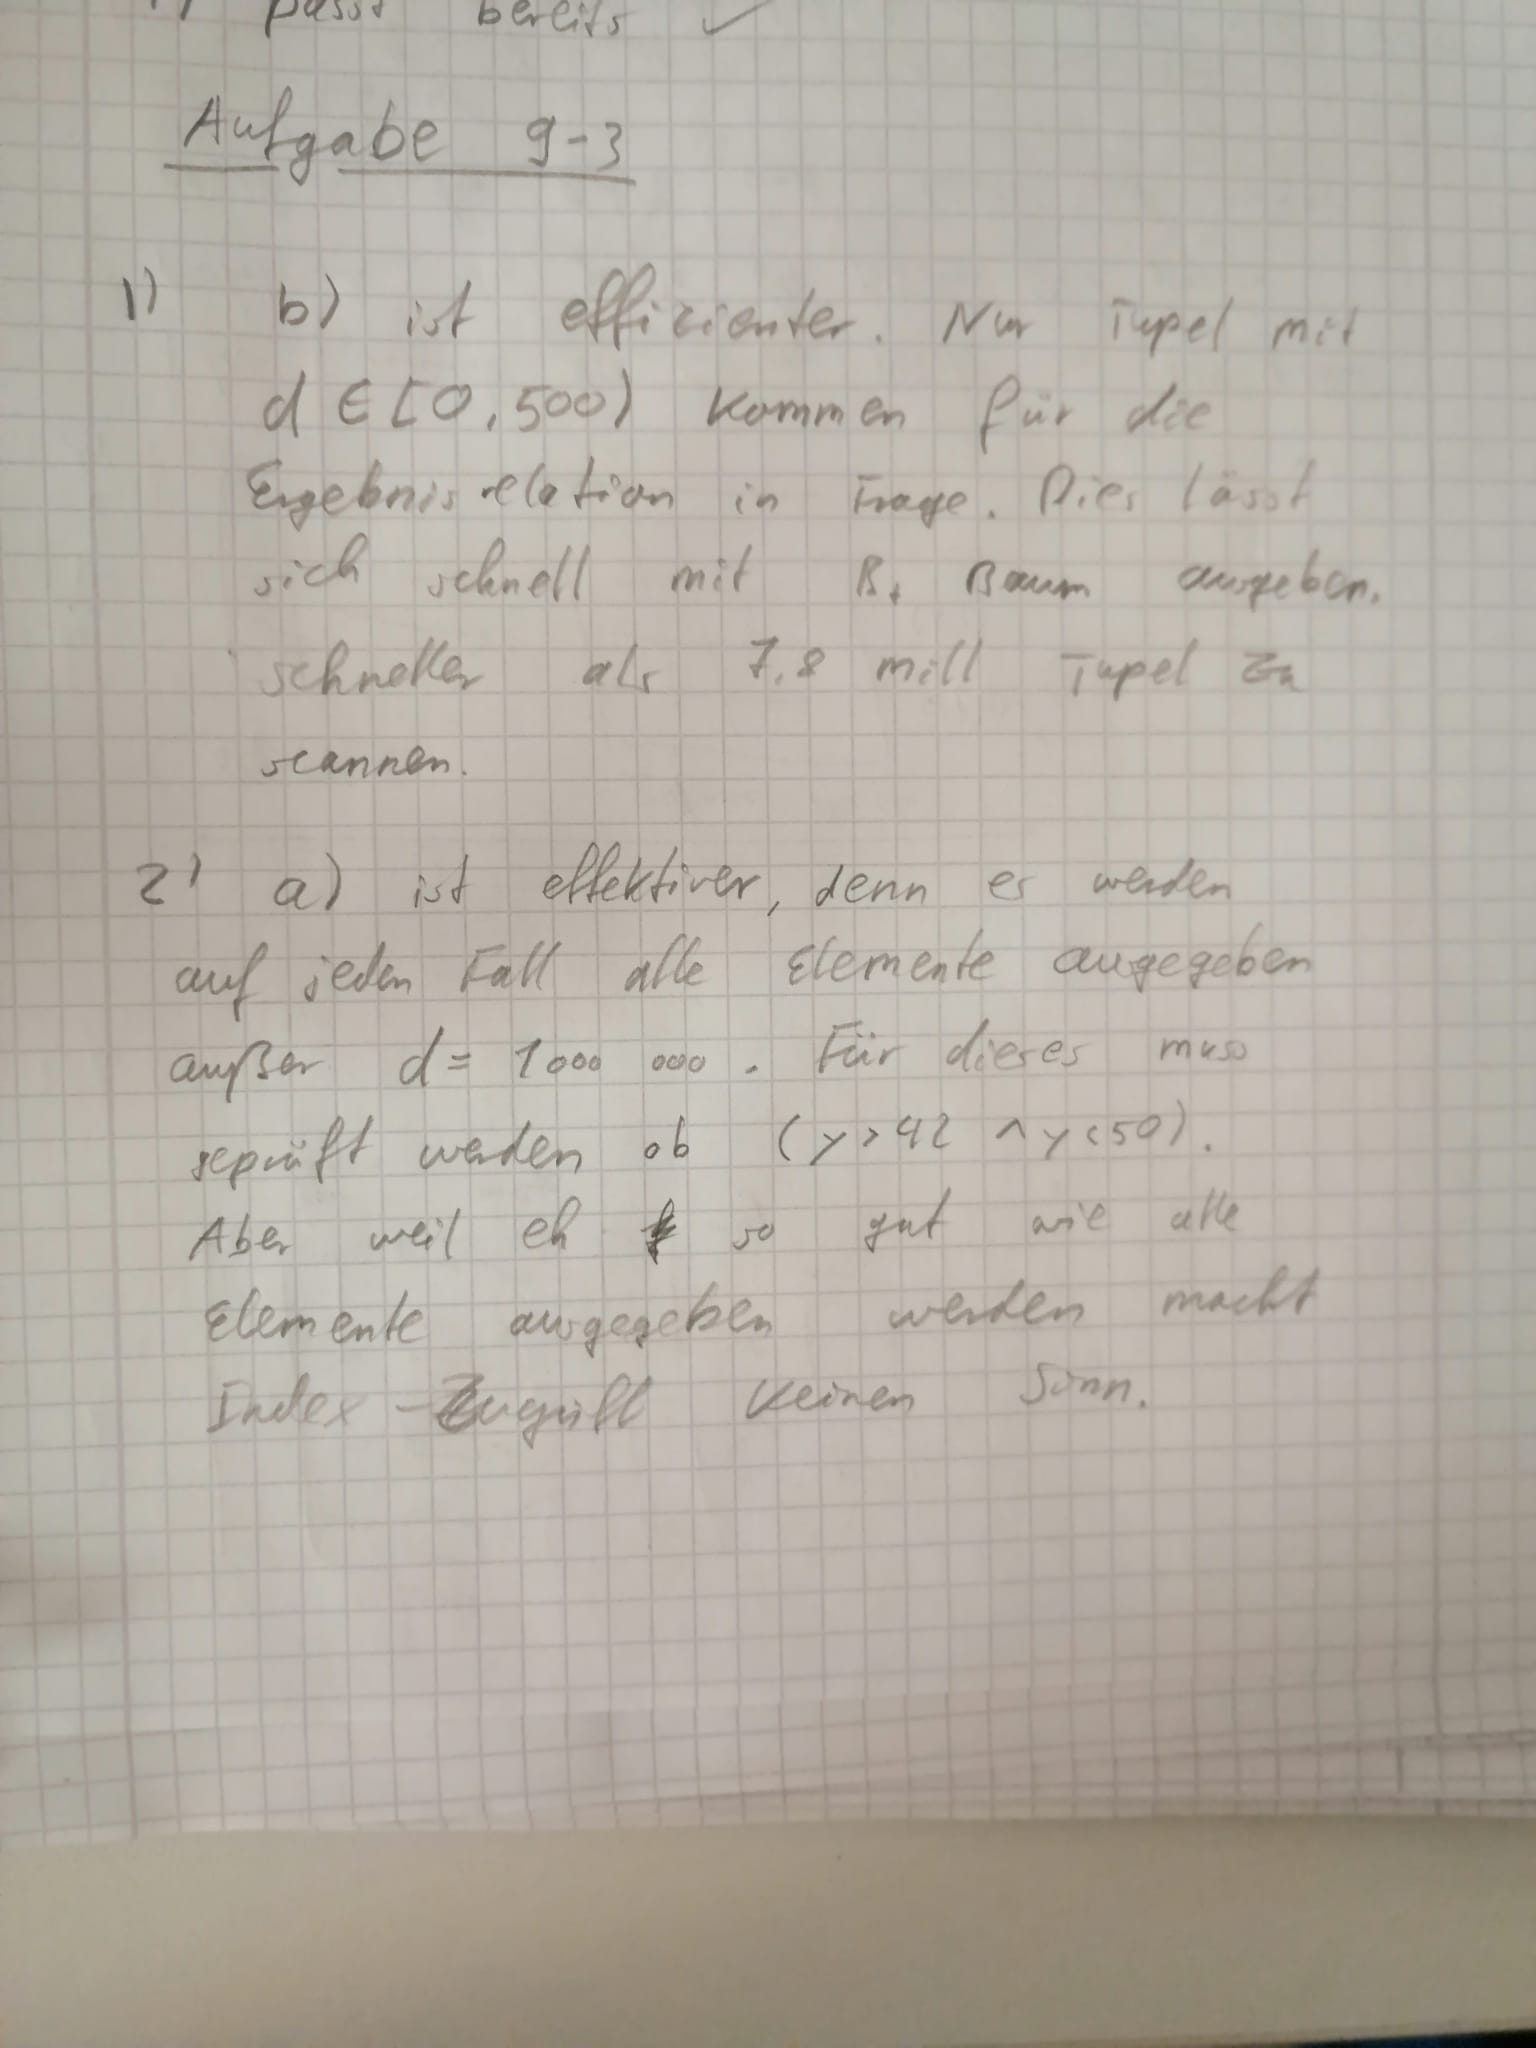 passt bereits ✓
Aufgabe 9-3
1) b) ist effizienter. Nur Tupel mit
d ∈ [0, 500) kommen für die
Ergebnisrelation in Frage. Dies lässt
sich schnell mit B+ Baum ausgeben.
schneller als 7,8 mill Tupel zu
scannen.
2) a) ist effektiver, denn es werden
auf jeden Fall alle Elemente ausgegeben
außer d = 1000 000. Für dieses muss
geprüft werden ob (y > 42 ∧ y < 50).
Aber weil eh so gut wie alle
Elemente ausgegeben werden macht
Index-Zugriff keinen Sinn.